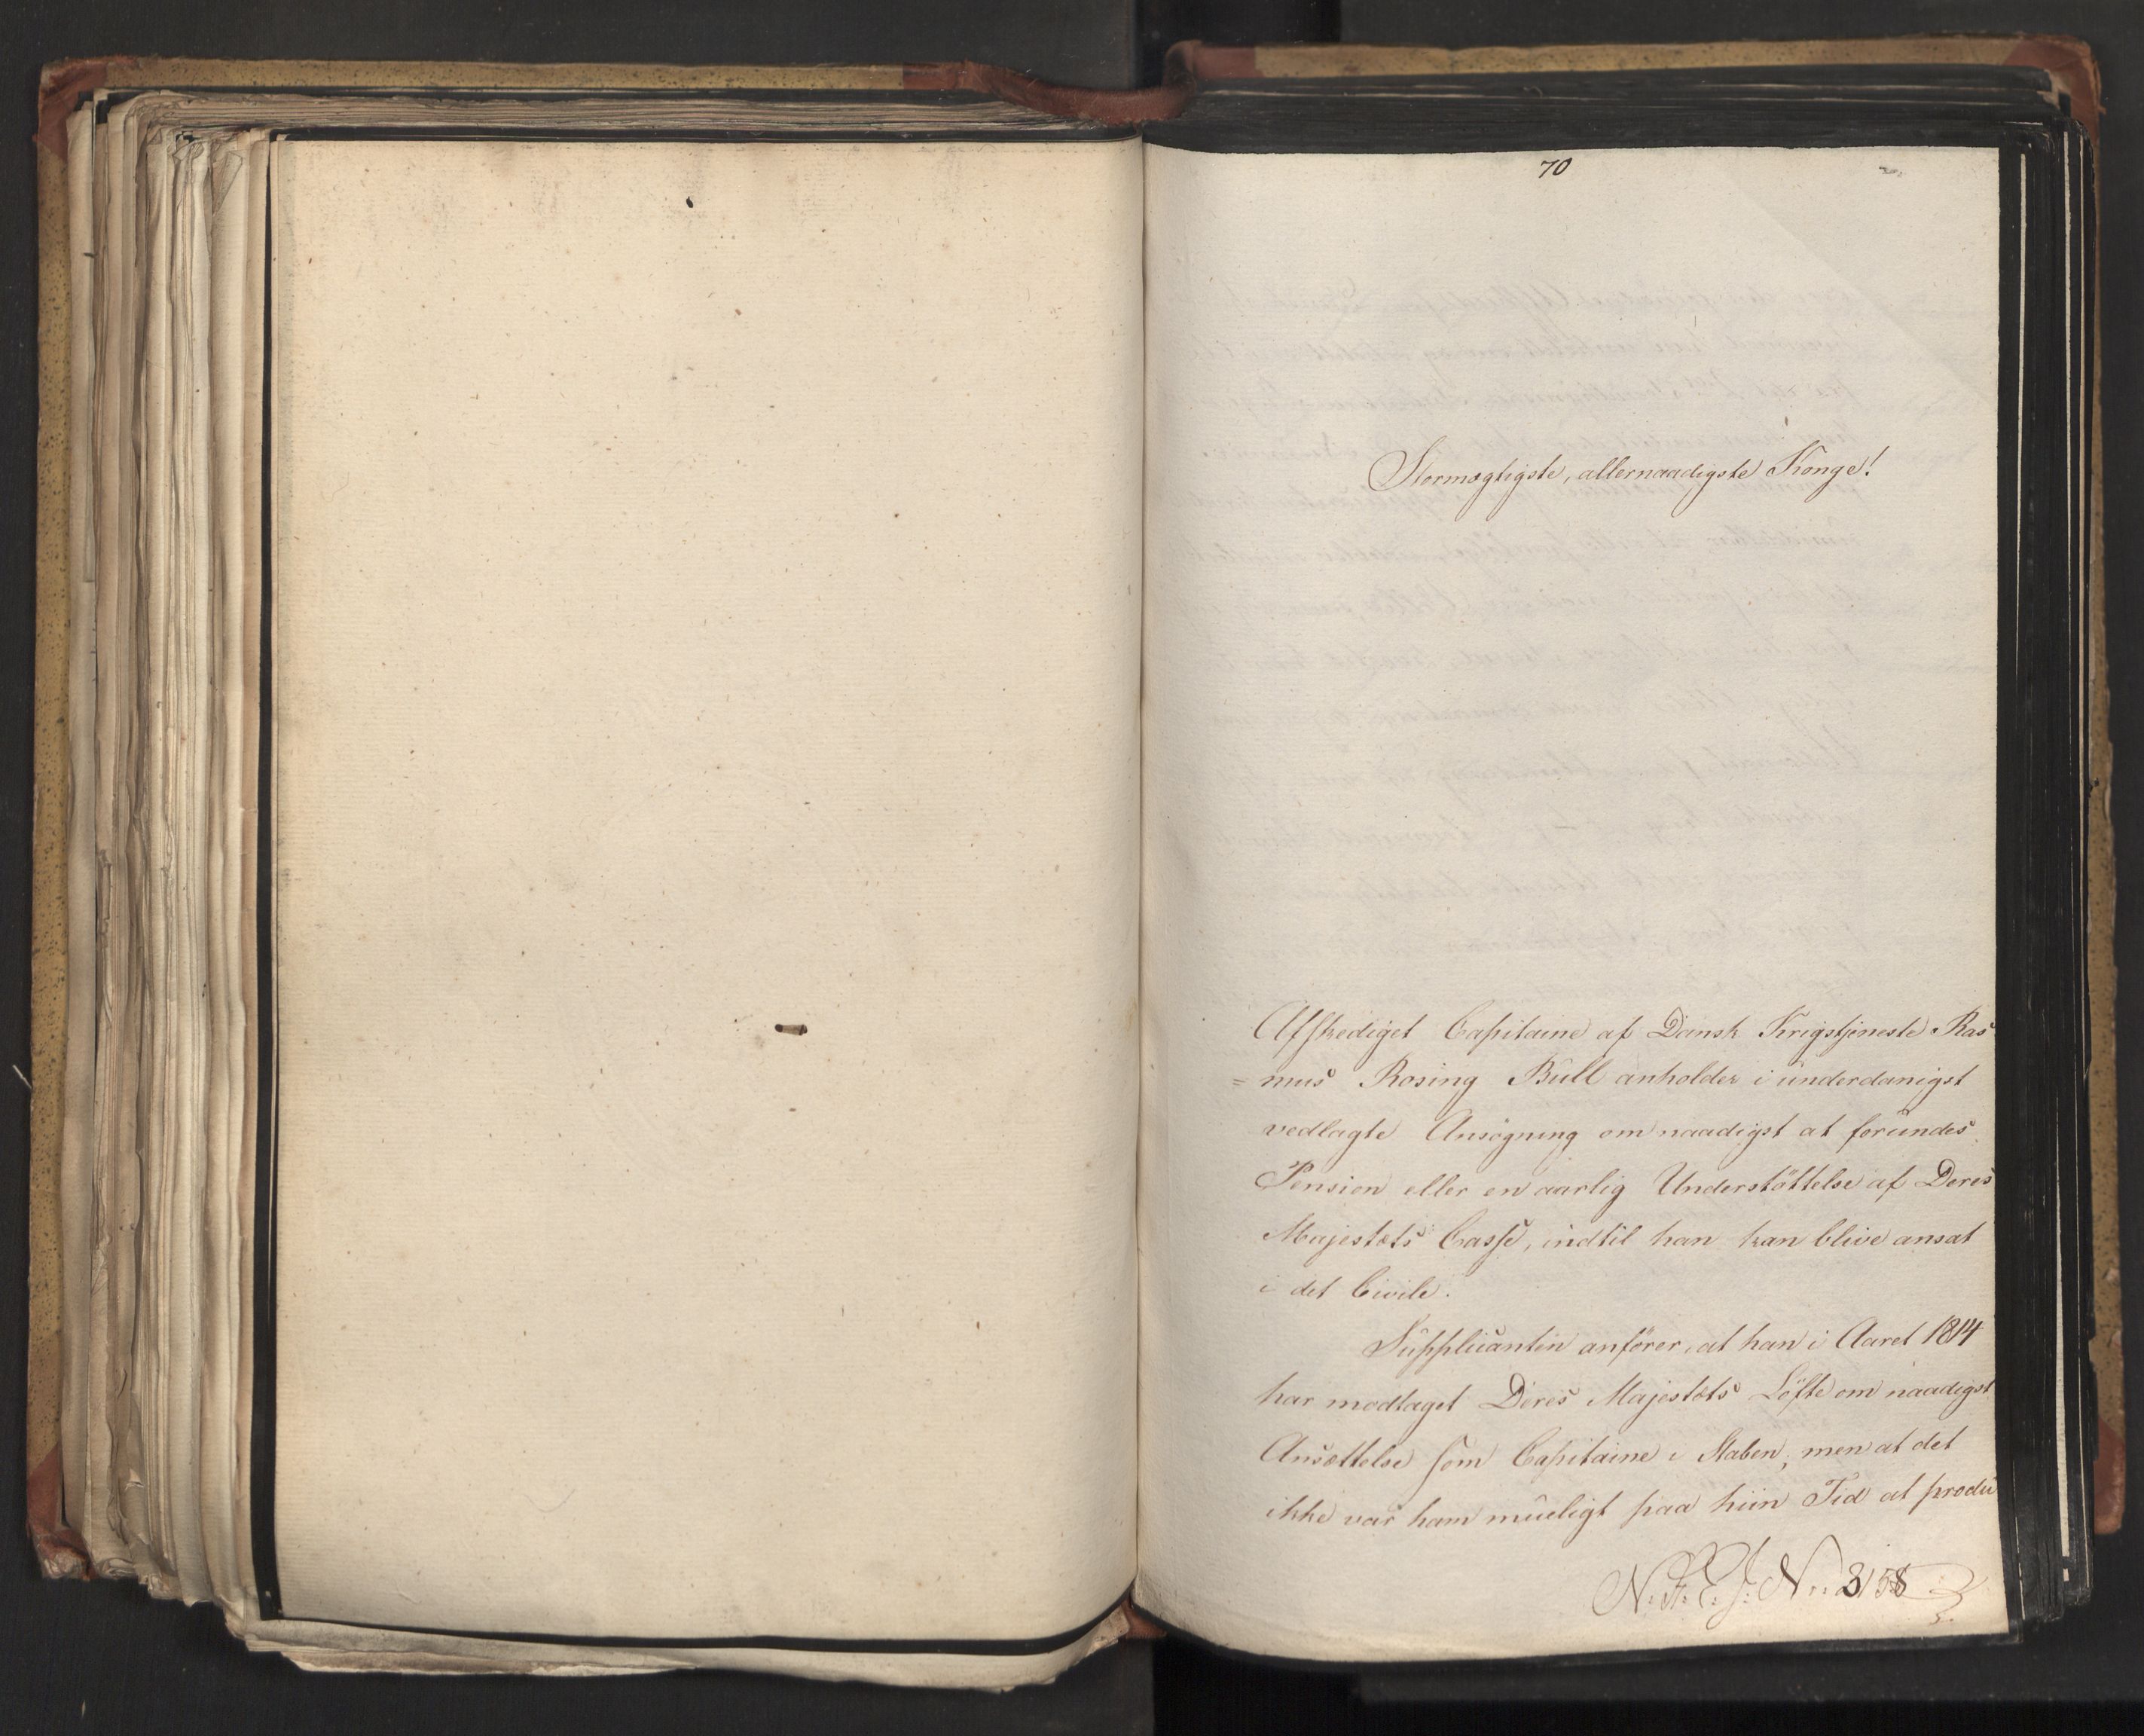 70
Stormægtigste, allernaadigste Konge!
Afskediget Capitaine af Dansk Krigstjeneste Ras
= mus Rosing Bull anholder i underdanigst
vedlagte Ansøgning om naadigst at forundes
Pension eller en aarlig Understøttelse af Deres
Majestæts Casse, indtil han kan blive ansat
i det Civile.
Supplicanten anfører, at han i Aaret 1814
har modtaget Deres Majestæts Løfte om naadigst
Ansættelse som Capitaine i Staben, men at det
ikke var ham mueligt paa hiin Tid at produ
N: F: E: J: No: 3158